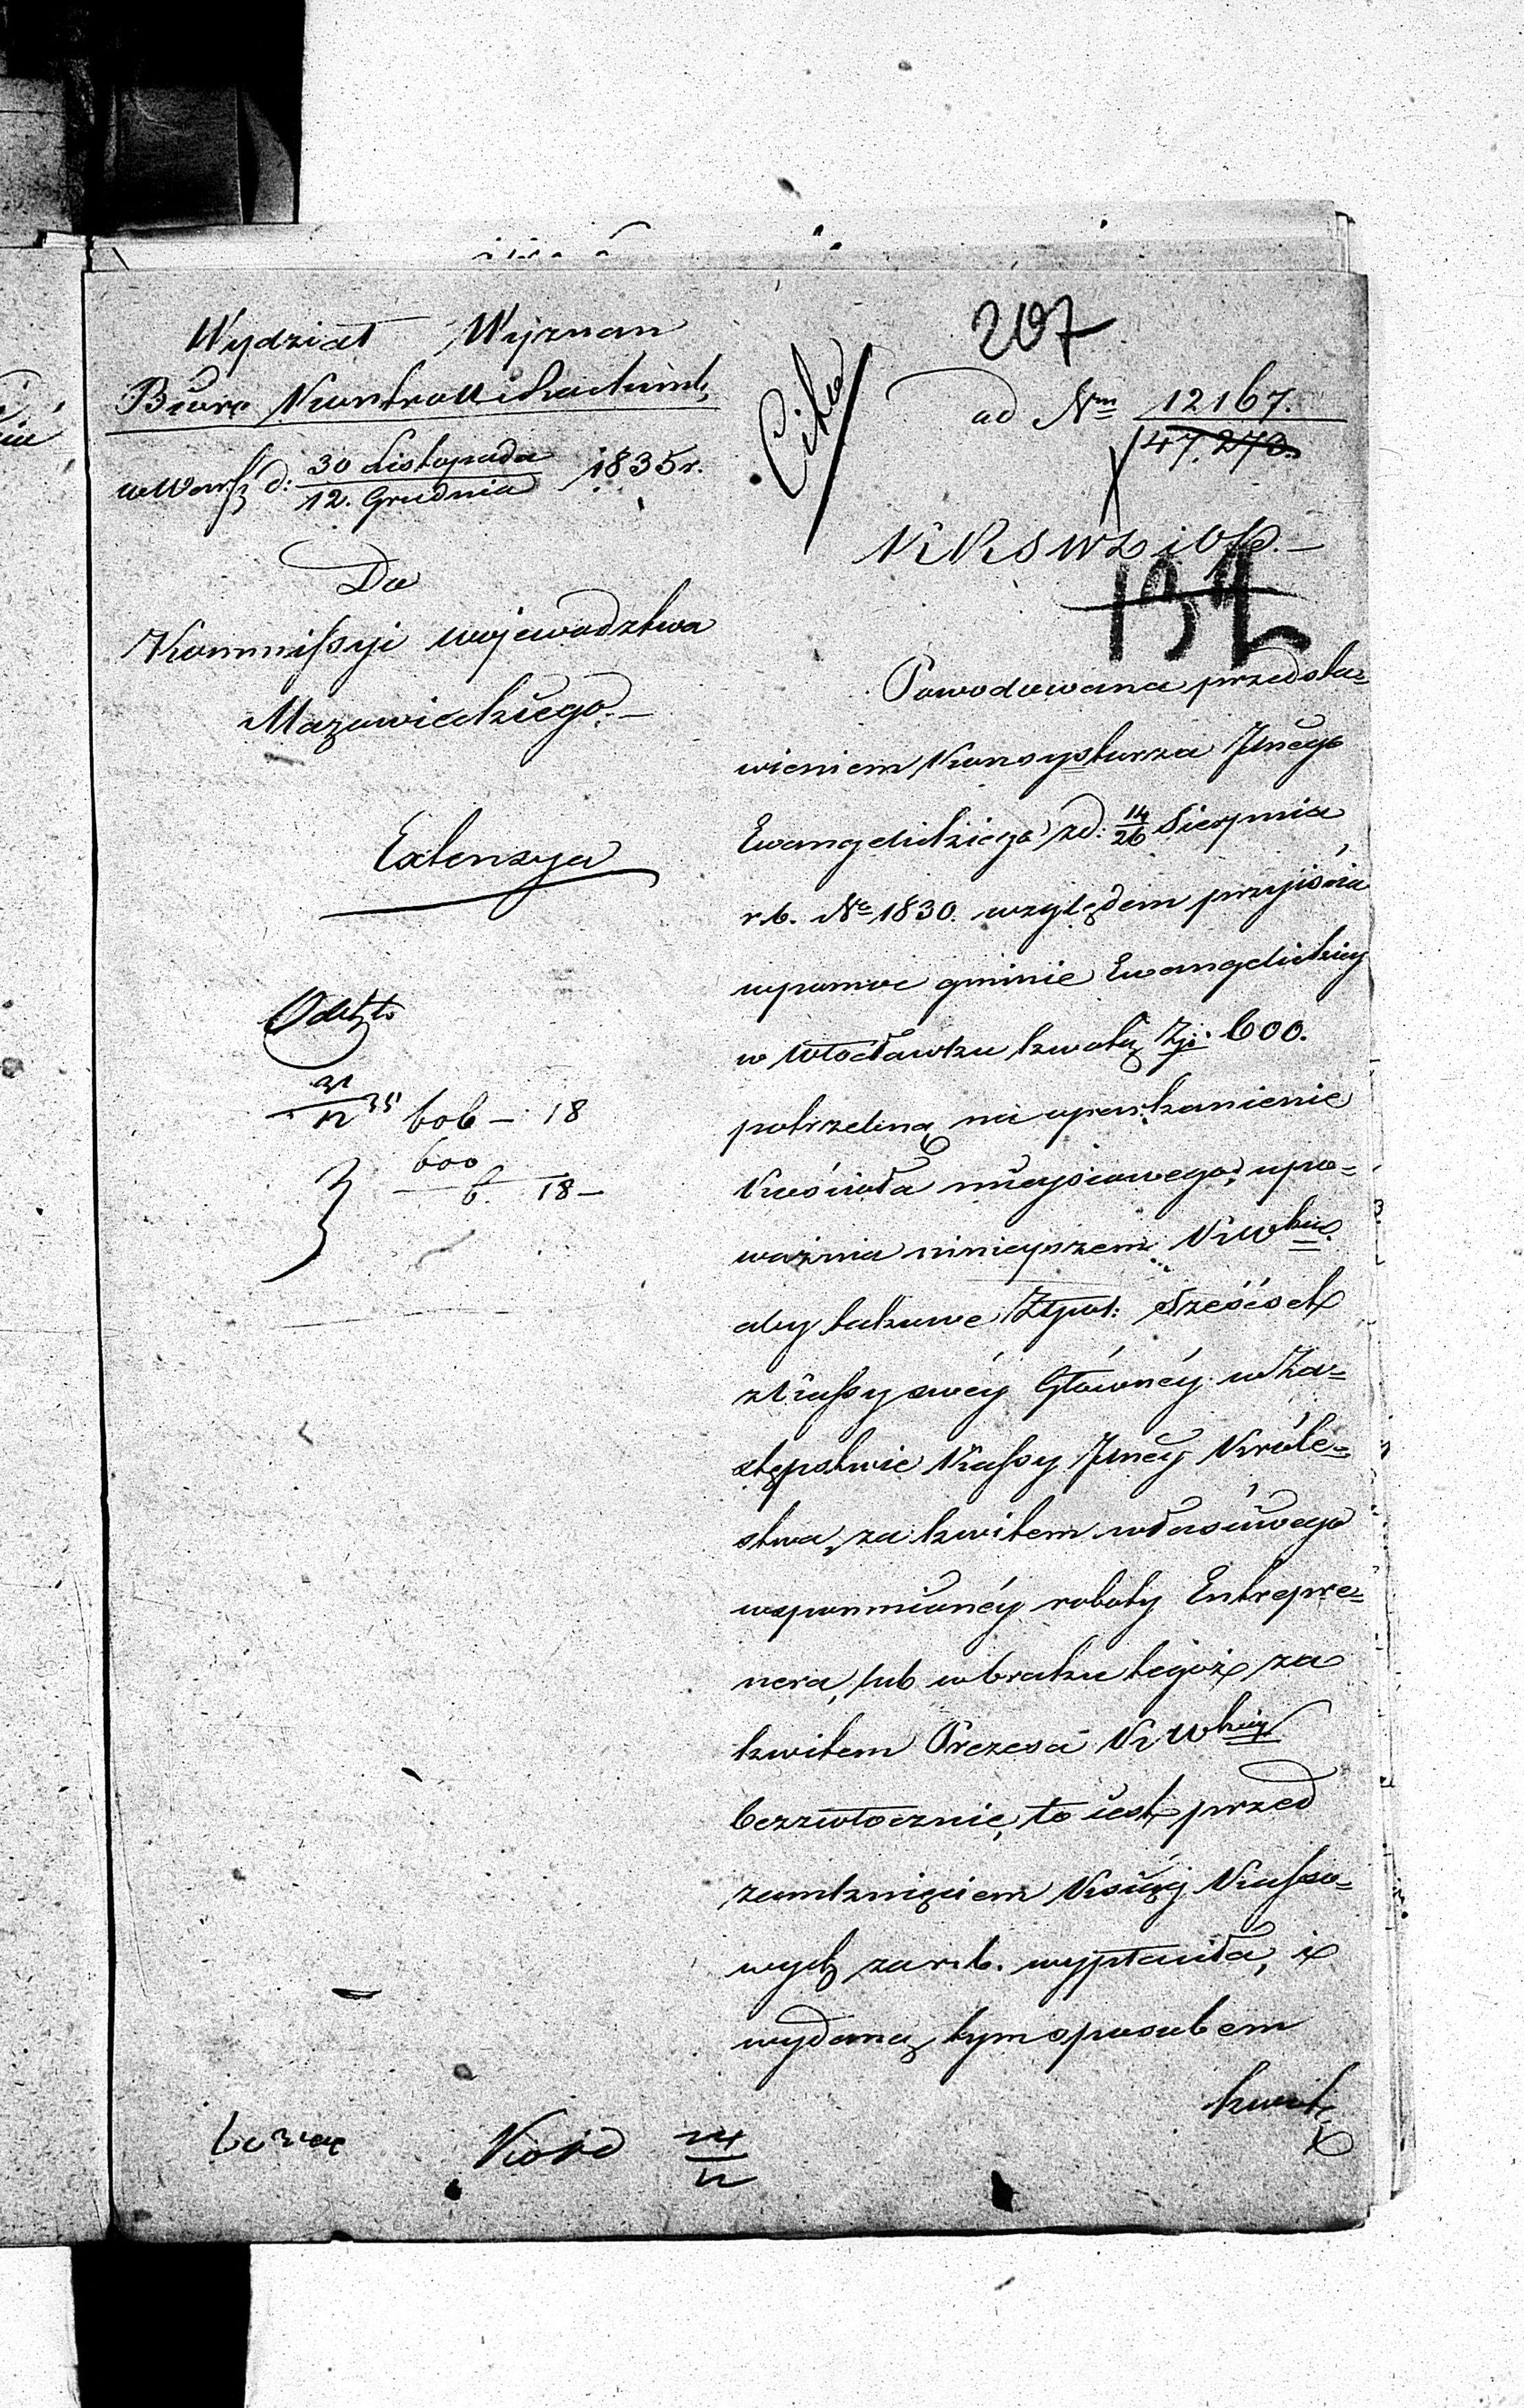 Wydział Wyznan
Biuro Kontroli i Rachunk.
w Warsz d: 30 Listopada 1835 r.
12. Grudnia
Do
Kommissyi Województwa
Mazowieckiego.—
Extensya
31
12 35 606 — 18
600
6. 18 —
207
Cito
ad Nrm 12167.
47.270.
KRSWD i OP.—
132
Powodowana przedsta=
wieniem Konsystorza Jnego
Ewangelickiego z d: 14/26 Sierpnia
r.b. No 1830. względem przyjścia
w pomoc gminie Ewangelickiey
w Włocławku kwotą Zp: 600.
potrzebną na oparkanienie
Kościoła mieyscowego, upo=
ważnia ninieyszem KWką
aby takowe Złpol: sześćset
z Kassy swéy Głównéy w Za=
stępstwie Kassy Jnéy Króle=
stwa, za kwitem właściwego
wspomnionéy roboty Entrepre=
nera, lub w braku tegoż za
kwitem Prezesa KWkiéy
bezzwłocznie, to iest przed
zamknięciem Ksiąg Kasso=
wych za r.b. wypłaciła, i
wydaną tym sposobem
kwotę